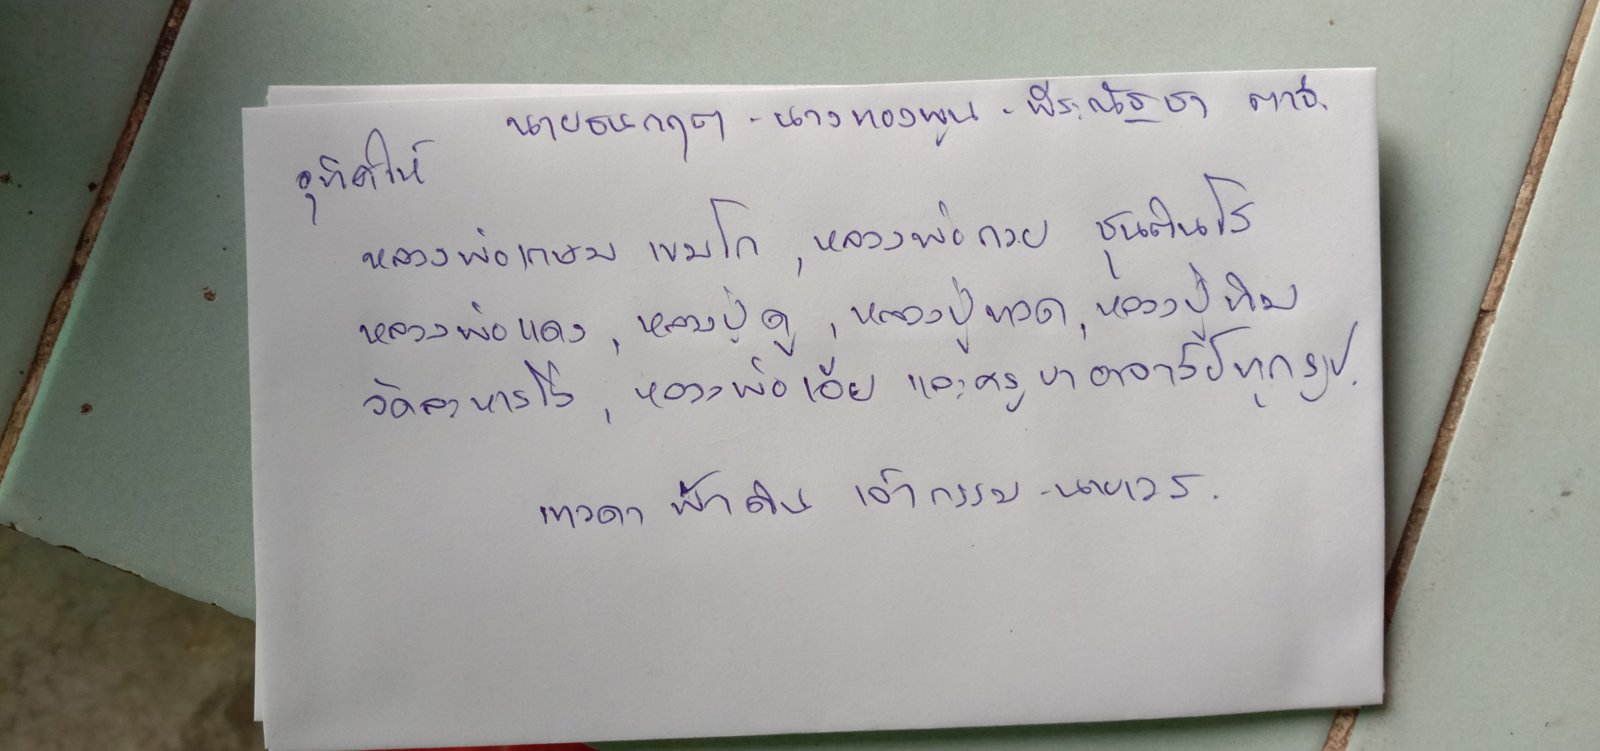 นายธนกฤต - นางทองพูน - พีระณัฐชา
อุทิศให้
หลวงพ่อเกษม เขมโก , หลวงพ่อกวย ชุนตินโร
หลวงพ่อแดง , หลวงปู่ดู่ , หลวงปู่ทวด , หลวงปู่ทิม
วัดละหารไร่ , หลวงพ่อเอีย และครูบาอาจารย์ทุกรูป.
เทวดา ฟ้าดิน เจ้ากรรม - นายเวร.